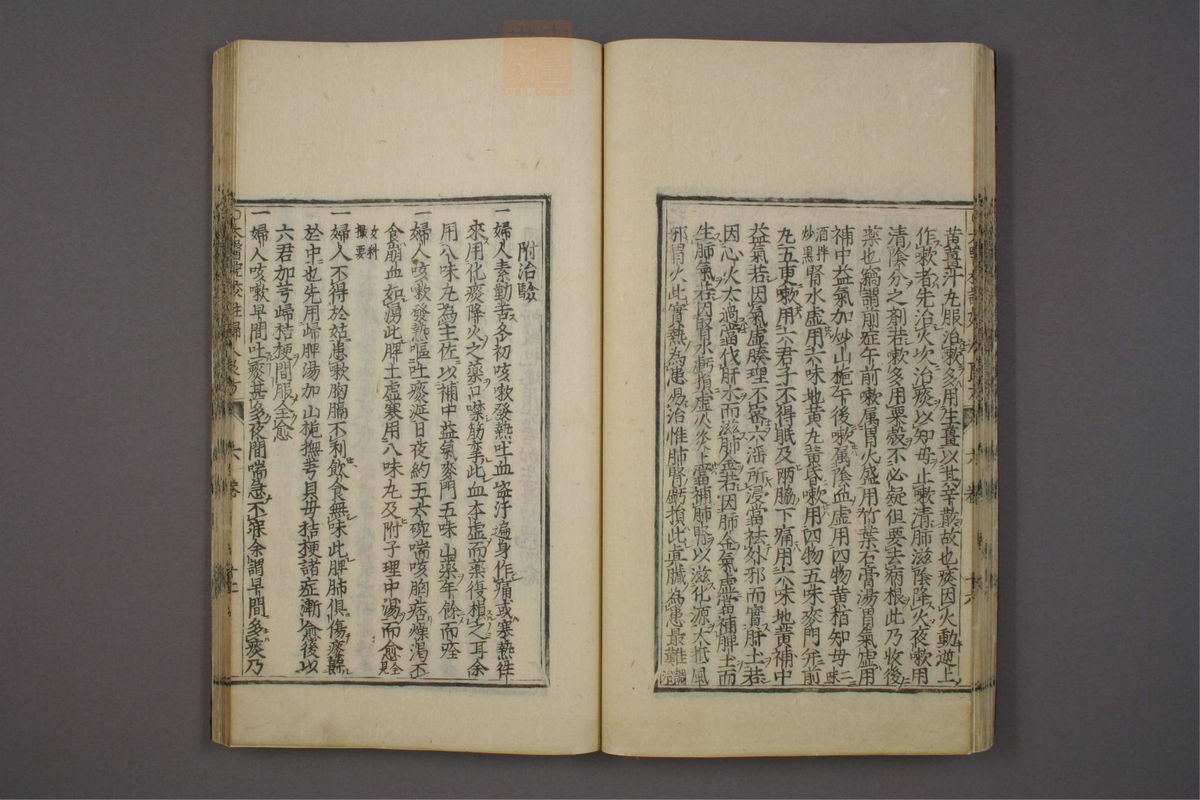 黄薑汁丸服治嗽多用生薑以其辛散故也痰因火動逆上
作嗽者先治火次治痰以知母止嗽清肺滋陰降火夜嗽用
清陰分之劑若嗽多用粟殻不必疑但要去病根此乃收後
藥也竊謂前症午前嗽属胃火盛用竹葉石膏湯胃氣虚用
補中益氣加炒山梔午後嗽属陰血虚用四物黄栢知母二味
酒拌炒黒腎水虚用六味地黄丸黄昏嗽用四物五味麥門并前
丸五更嗽用六君子不得眠及兩脇下痛用六味地黄補中
益氣若因氣虚腠理不密六淫所浸當祛外邪而實肝土若
因心火太過當伐肝木而滋肺金若因肺金氣虚當補脾土而
生肺氣若因腎水虧損虚火炎上當補肺腎以滋化源大抵風
邪胃火此實熱為患易治惟肺腎虧損此真臟為患最難調
六卷 十六
附治驗
一婦人素勤苦冬初咳嗽發熱吐血盗汗遍身作痛或寒熱徃
來用化痰降火之藥口噤筋攣此血本虚而藥復損之耳余
用八味丸為主佐以補中益氣麥門五味山藥年餘而痊
一婦人咳嗽發熱嘔吐痰涎日夜約五六碗喘咳胸痞燥渇不
食崩血如湧此脾土虚寒用八味丸及附子理中湯而愈全見
女科撮要
一婦人不得於姑患嗽胸膈不利飲食無味此脾肺俱傷痰鬱
於中也先用歸脾湯加山梔撫芎貝母桔梗諸症漸愈後以
六君加芎歸桔梗間服全愈
一婦人咳嗽早間吐痰甚多夜間喘急不寐余謂早間多痰乃
六卷